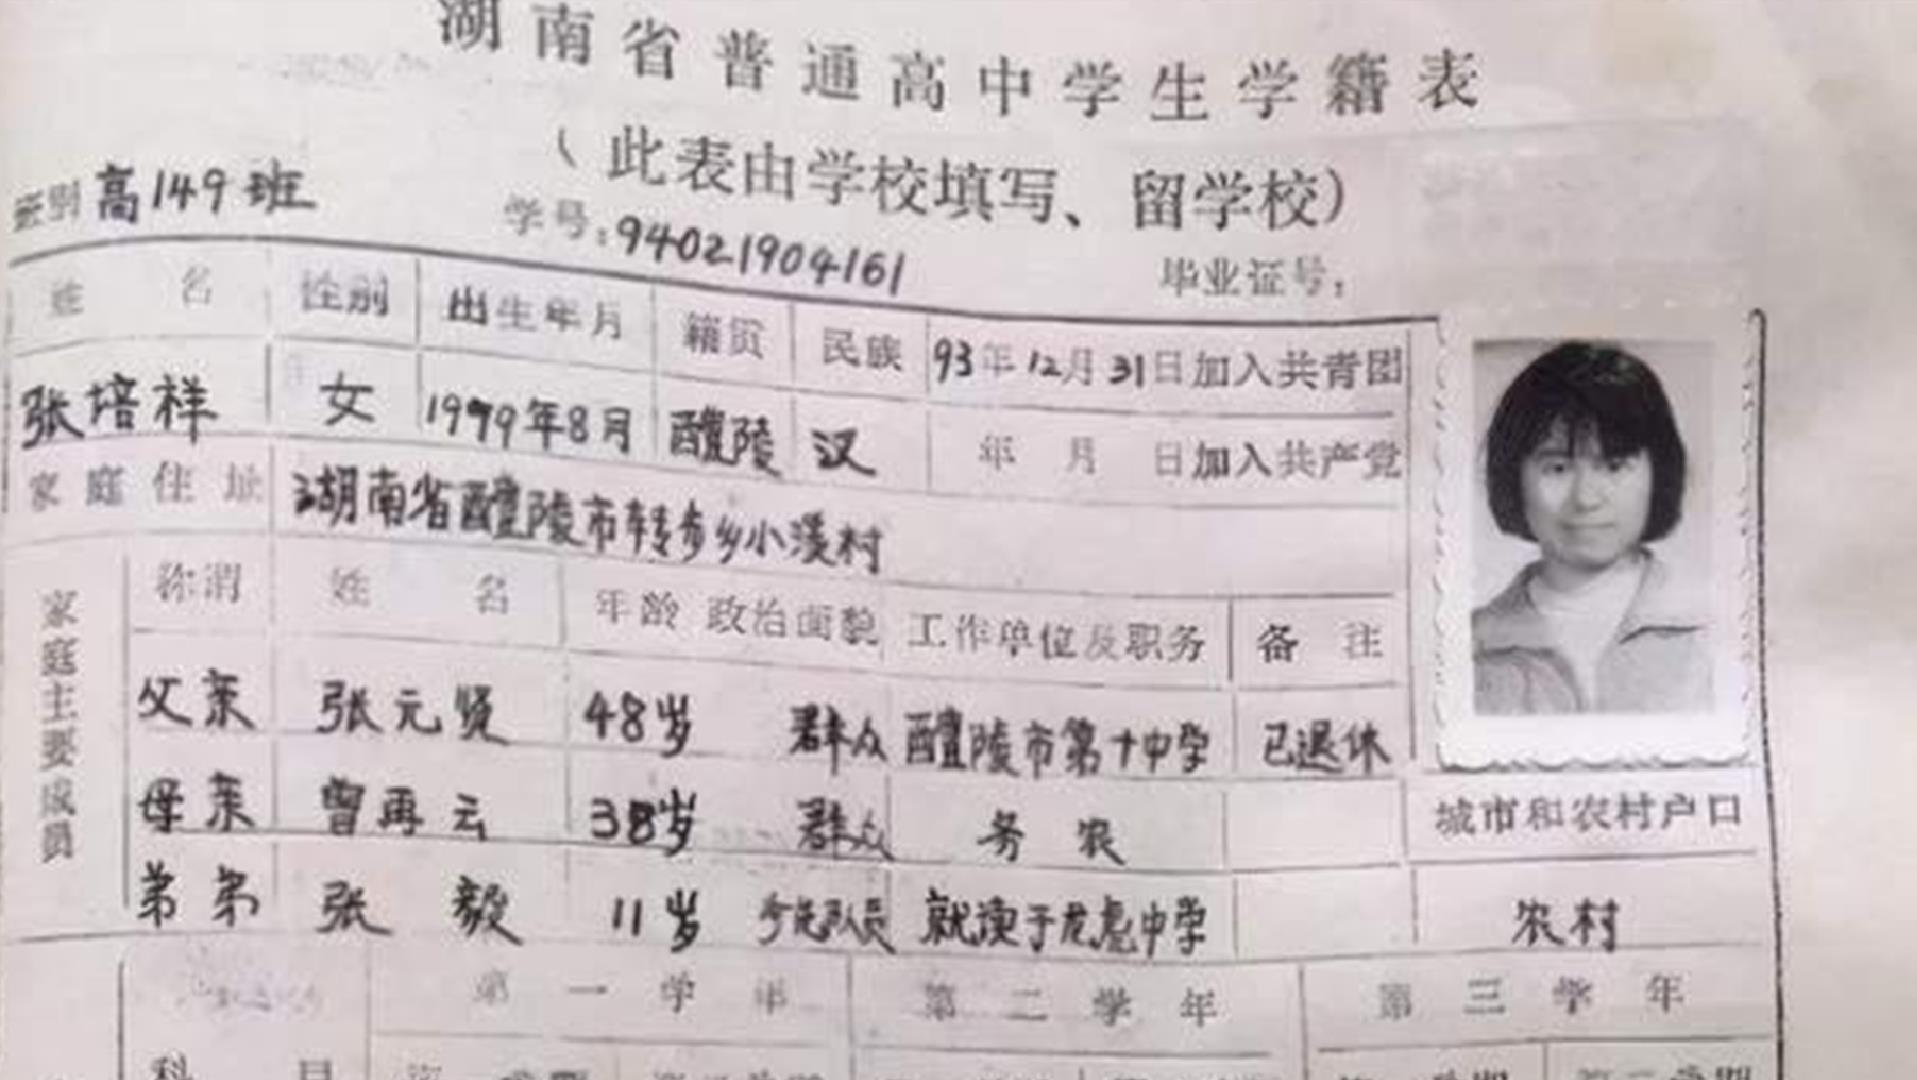 湖南省普通高中学生学籍表
（此表由学校填写、留学校）
班别 高149班
学号：94021904161
毕业证号：
姓名 性别 出生年月 籍贯 民族 93年12月31日加入共青团
张培祥 女 1979年8月 醴陵 汉 年月日加入共产党
家庭住址 湖南省醴陵市转步乡小溪村
家庭主要成员
称谓 姓名 年龄 政治面貌 工作单位及职务 备注
父亲 张元贤 48岁 群众 醴陵市第十中学 已退休
母亲 曾再云 38岁 群众 务农
城市和农村户口
弟弟 张毅 11岁 少先队员 就读于龙虎中学
农村
第一学年 第二学年 第三学年
科目